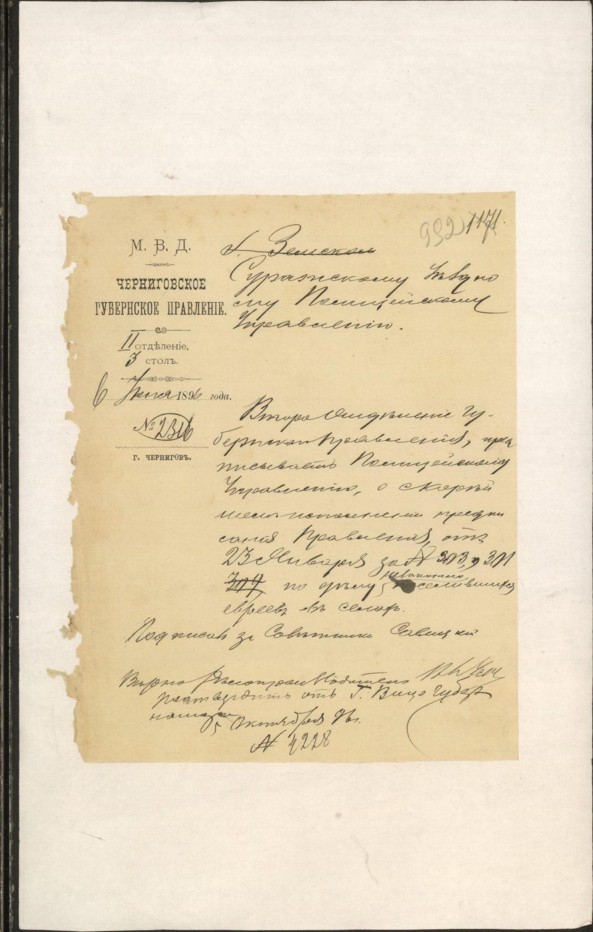 992 1171.
М. В. Д.
ЧЕРНИГОВСКОЕ
ГУБЕРНСКОЕ ПРАВЛЕНІЕ.
II
отдѣленіе,
3 столъ.
6 1896 года.
№ 2316
Г. ЧЕРНИГОВЪ.
Земском
Суражскому Уѣздно
му Полицейскому
Управленію.
Второе Отдѣленіе Гу-
бернскаго Правленія, пред
писываетъ Полицейскому
Управленію, о скорѣй
шемъ исполненіи предпи
санія Правленія, отъ
23 Января за № 303, и 301
309 по дѣлу
евреевъ въ селах.
Подписал за Совѣтника Савицкій
Вѣрно Дѣлопроизводитель
отъ Г. Вице Губер
5 Октября 96 г.
№ 4228